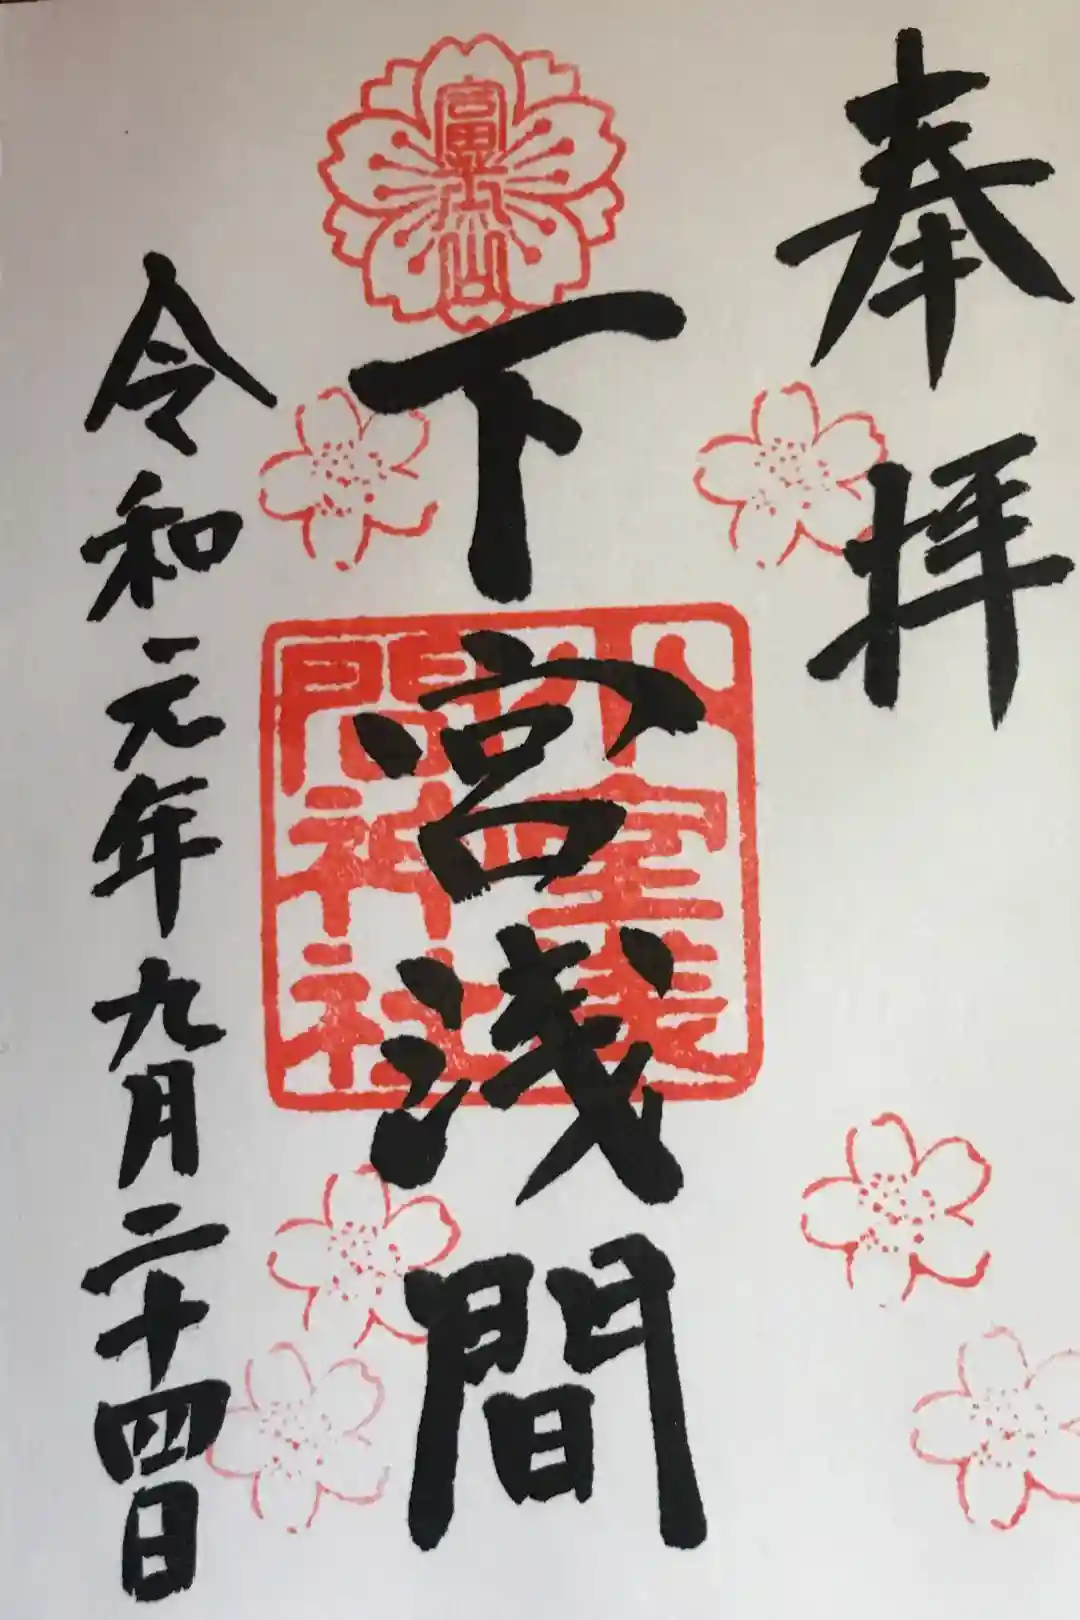 奉拝
富士山
下宮浅間
小室浅
間神社
令和元年九月二十四日